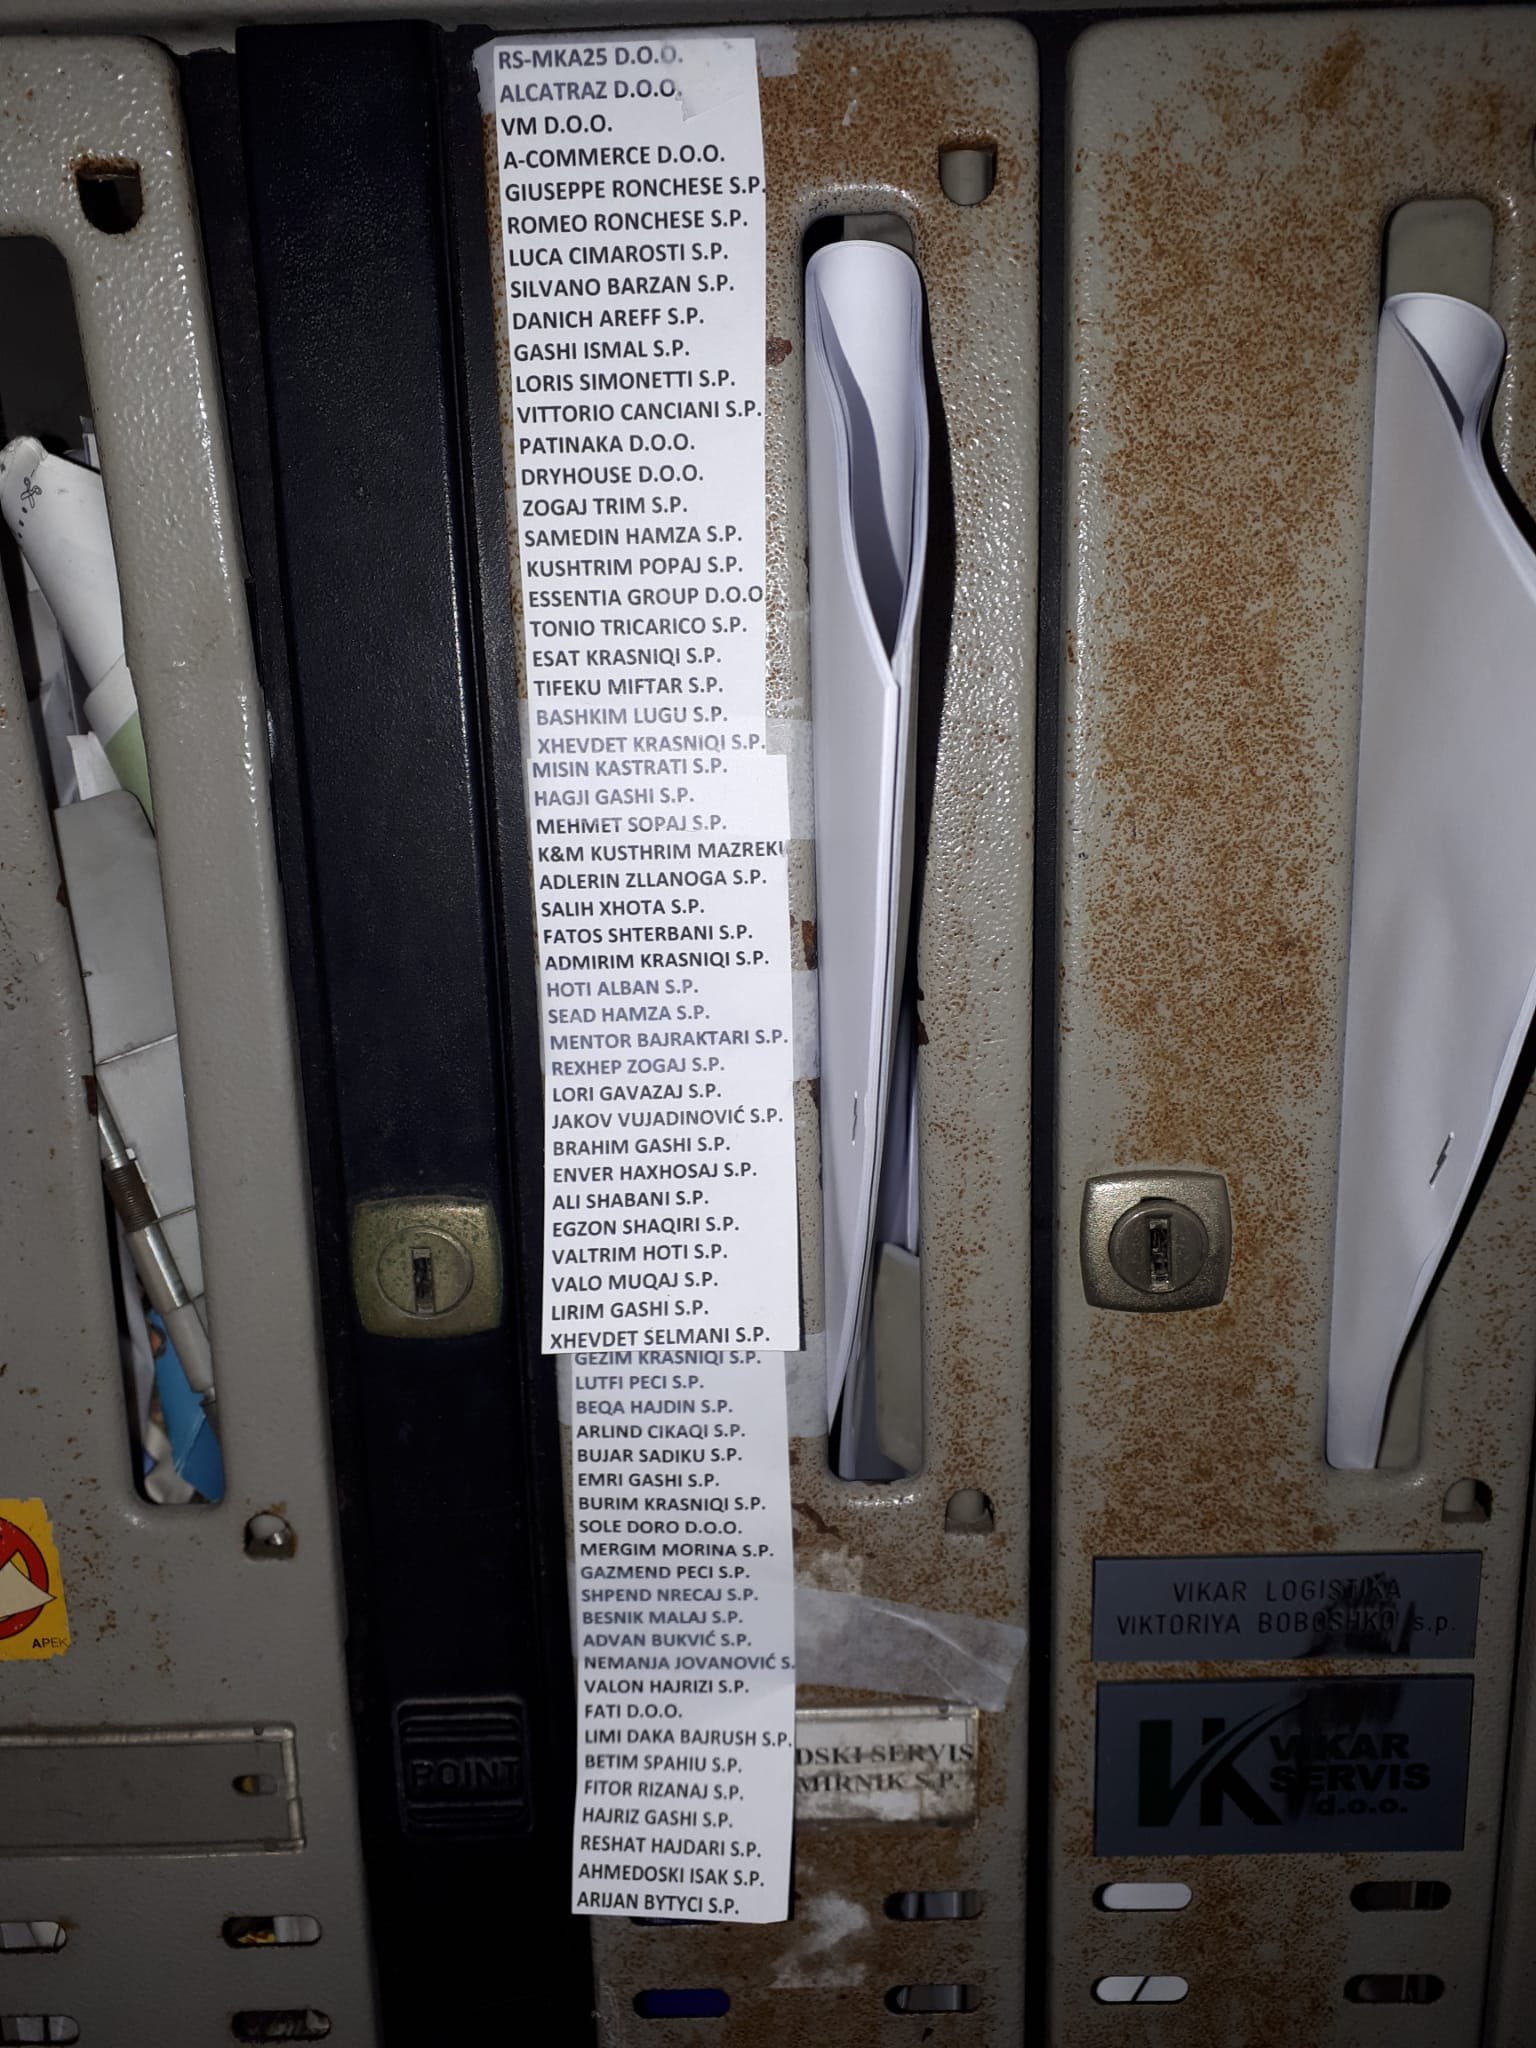 RS-MKA25 D.O.O.
ALCATRAZ D.O.O.
VM D.O.O.
A-COMMERCE D.O.O.
GIUSEPPE RONCHESE S.P.
ROMEO RONCHESE S.P.
LUCA CIMAROSTI S.P.
SILVANO BARZAN S.P.
DANICH AREFF S.P.
GASHI ISMAL S.P.
LORIS SIMONETTI S.P.
VITTORIO CANCIANI S.P.
PATINAKA D.O.O.
DRYHOUSE D.O.O.
ZOGAJ TRIM S.P.
SAMEDIN HAMZA S.P.
KUSHTRIM POPAJ S.P.
ESSENTIA GROUP D.O.O
TONIO TRICARICO S.P.
ESAT KRASNIQI S.P.
TIFEKU MIFTAR S.P.
BASHKIM LUGU S.P.
XHEVDET KRASNIQI S.P.
MISIN KASTRATI S.P.
HAGJI GASHI S.P.
MEHMET SOPAJ S.P.
K&M KUSTHRIM MAZREKU
ADLERIN ZLLANOGA S.P.
SALIH XHOTA S.P.
FATOS SHTERBANI S.P.
ADMIRIM KRASNIQI S.P.
HOTI ALBAN S.P.
SEAD HAMZA S.P.
MENTOR BAJRAKTARI S.P.
REXHEP ZOGAJ S.P.
LORI GAVAZAJ S.P.
JAKOV VUJADINOVIĆ S.P.
BRAHIM GASHI S.P.
ENVER HAXHOSAJ S.P.
ALI SHABANI S.P.
EGZON SHAQIRI S.P.
VALTRIM HOTI S.P.
VALO MUQAJ S.P.
LIRIM GASHI S.P.
XHEVDET SELMANI S.P.
GEZIM KRASNIQI S.P.
LUTFI PECI S.P.
BEQA HAJDIN S.P.
ARLIND CIKAQI S.P.
BUJAR SADIKU S.P.
EMRI GASHI S.P.
BURIM KRASNIQI S.P.
SOLE DORO D.O.O.
MERGIM MORINA S.P.
GAZMEND PECI S.P.
SHPEND NRECAJ S.P.
BESNIK MALAJ S.P.
ADVAN BUKVIĆ S.P.
NEMANJA JOVANOVIĆ S.
VALON HAJRIZI S.P.
FATI D.O.O.
LIMI DAKA BAJRUSH S.P.
BETIM SPAHIU S.P.
FITOR RIZANAJ S.P.
HAJRIZ GASHI S.P.
RESHAT HAJDARI S.P.
AHMEDOSKI ISAK S.P.
ARIJAN BYTYCI S.P.
DSKI SERVIS
MIRNIK S.P.
VIKAR LOGISTIKA
VIKTORIYA BOBOSHKO s.p.
VK VIKAR
SERVIS
d.o.o.
APEK
POINT